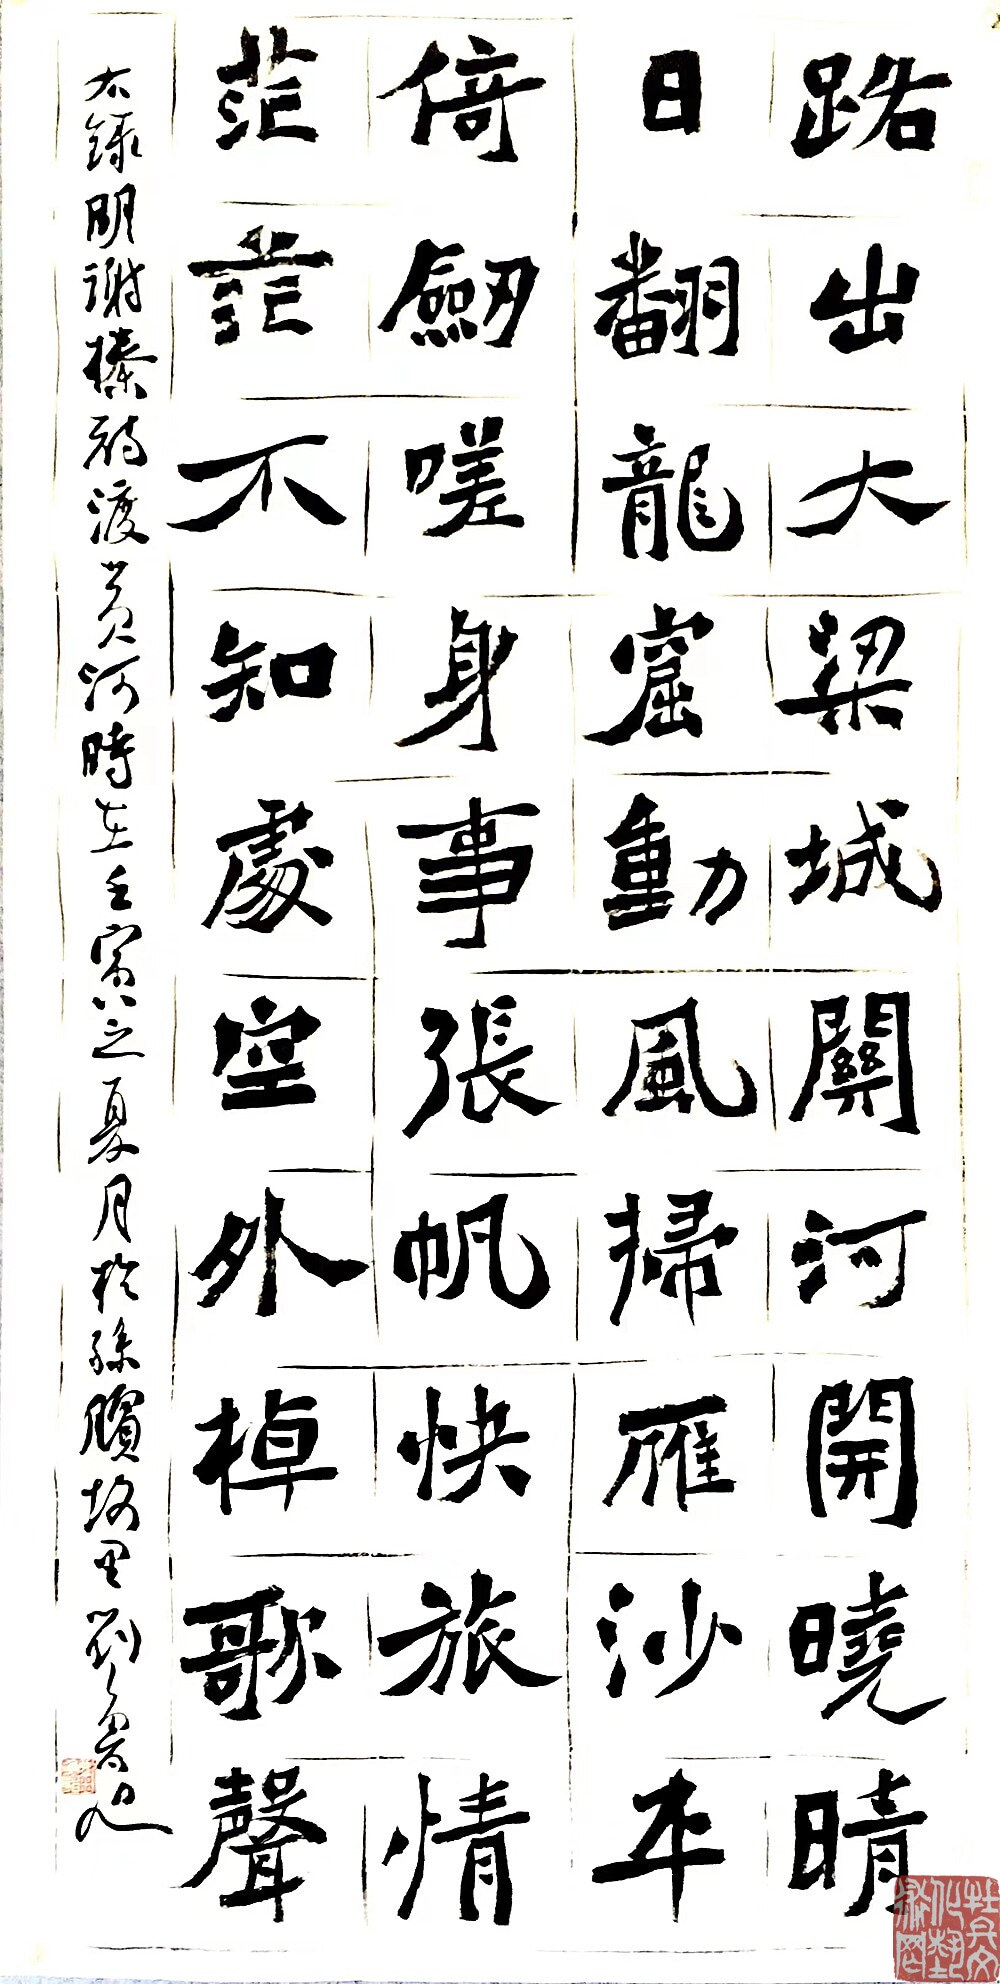 路出大梁城關河開曉晴
日翻龍窟動風掃雁沙平
倚劒嗟身事張帆快旅情
茫茫不知處空外棹歌聲
右錄明謝榛詩渡黃河時在壬寅之夏月於孫臏故里劉魯旭
牡丹文化艺术网